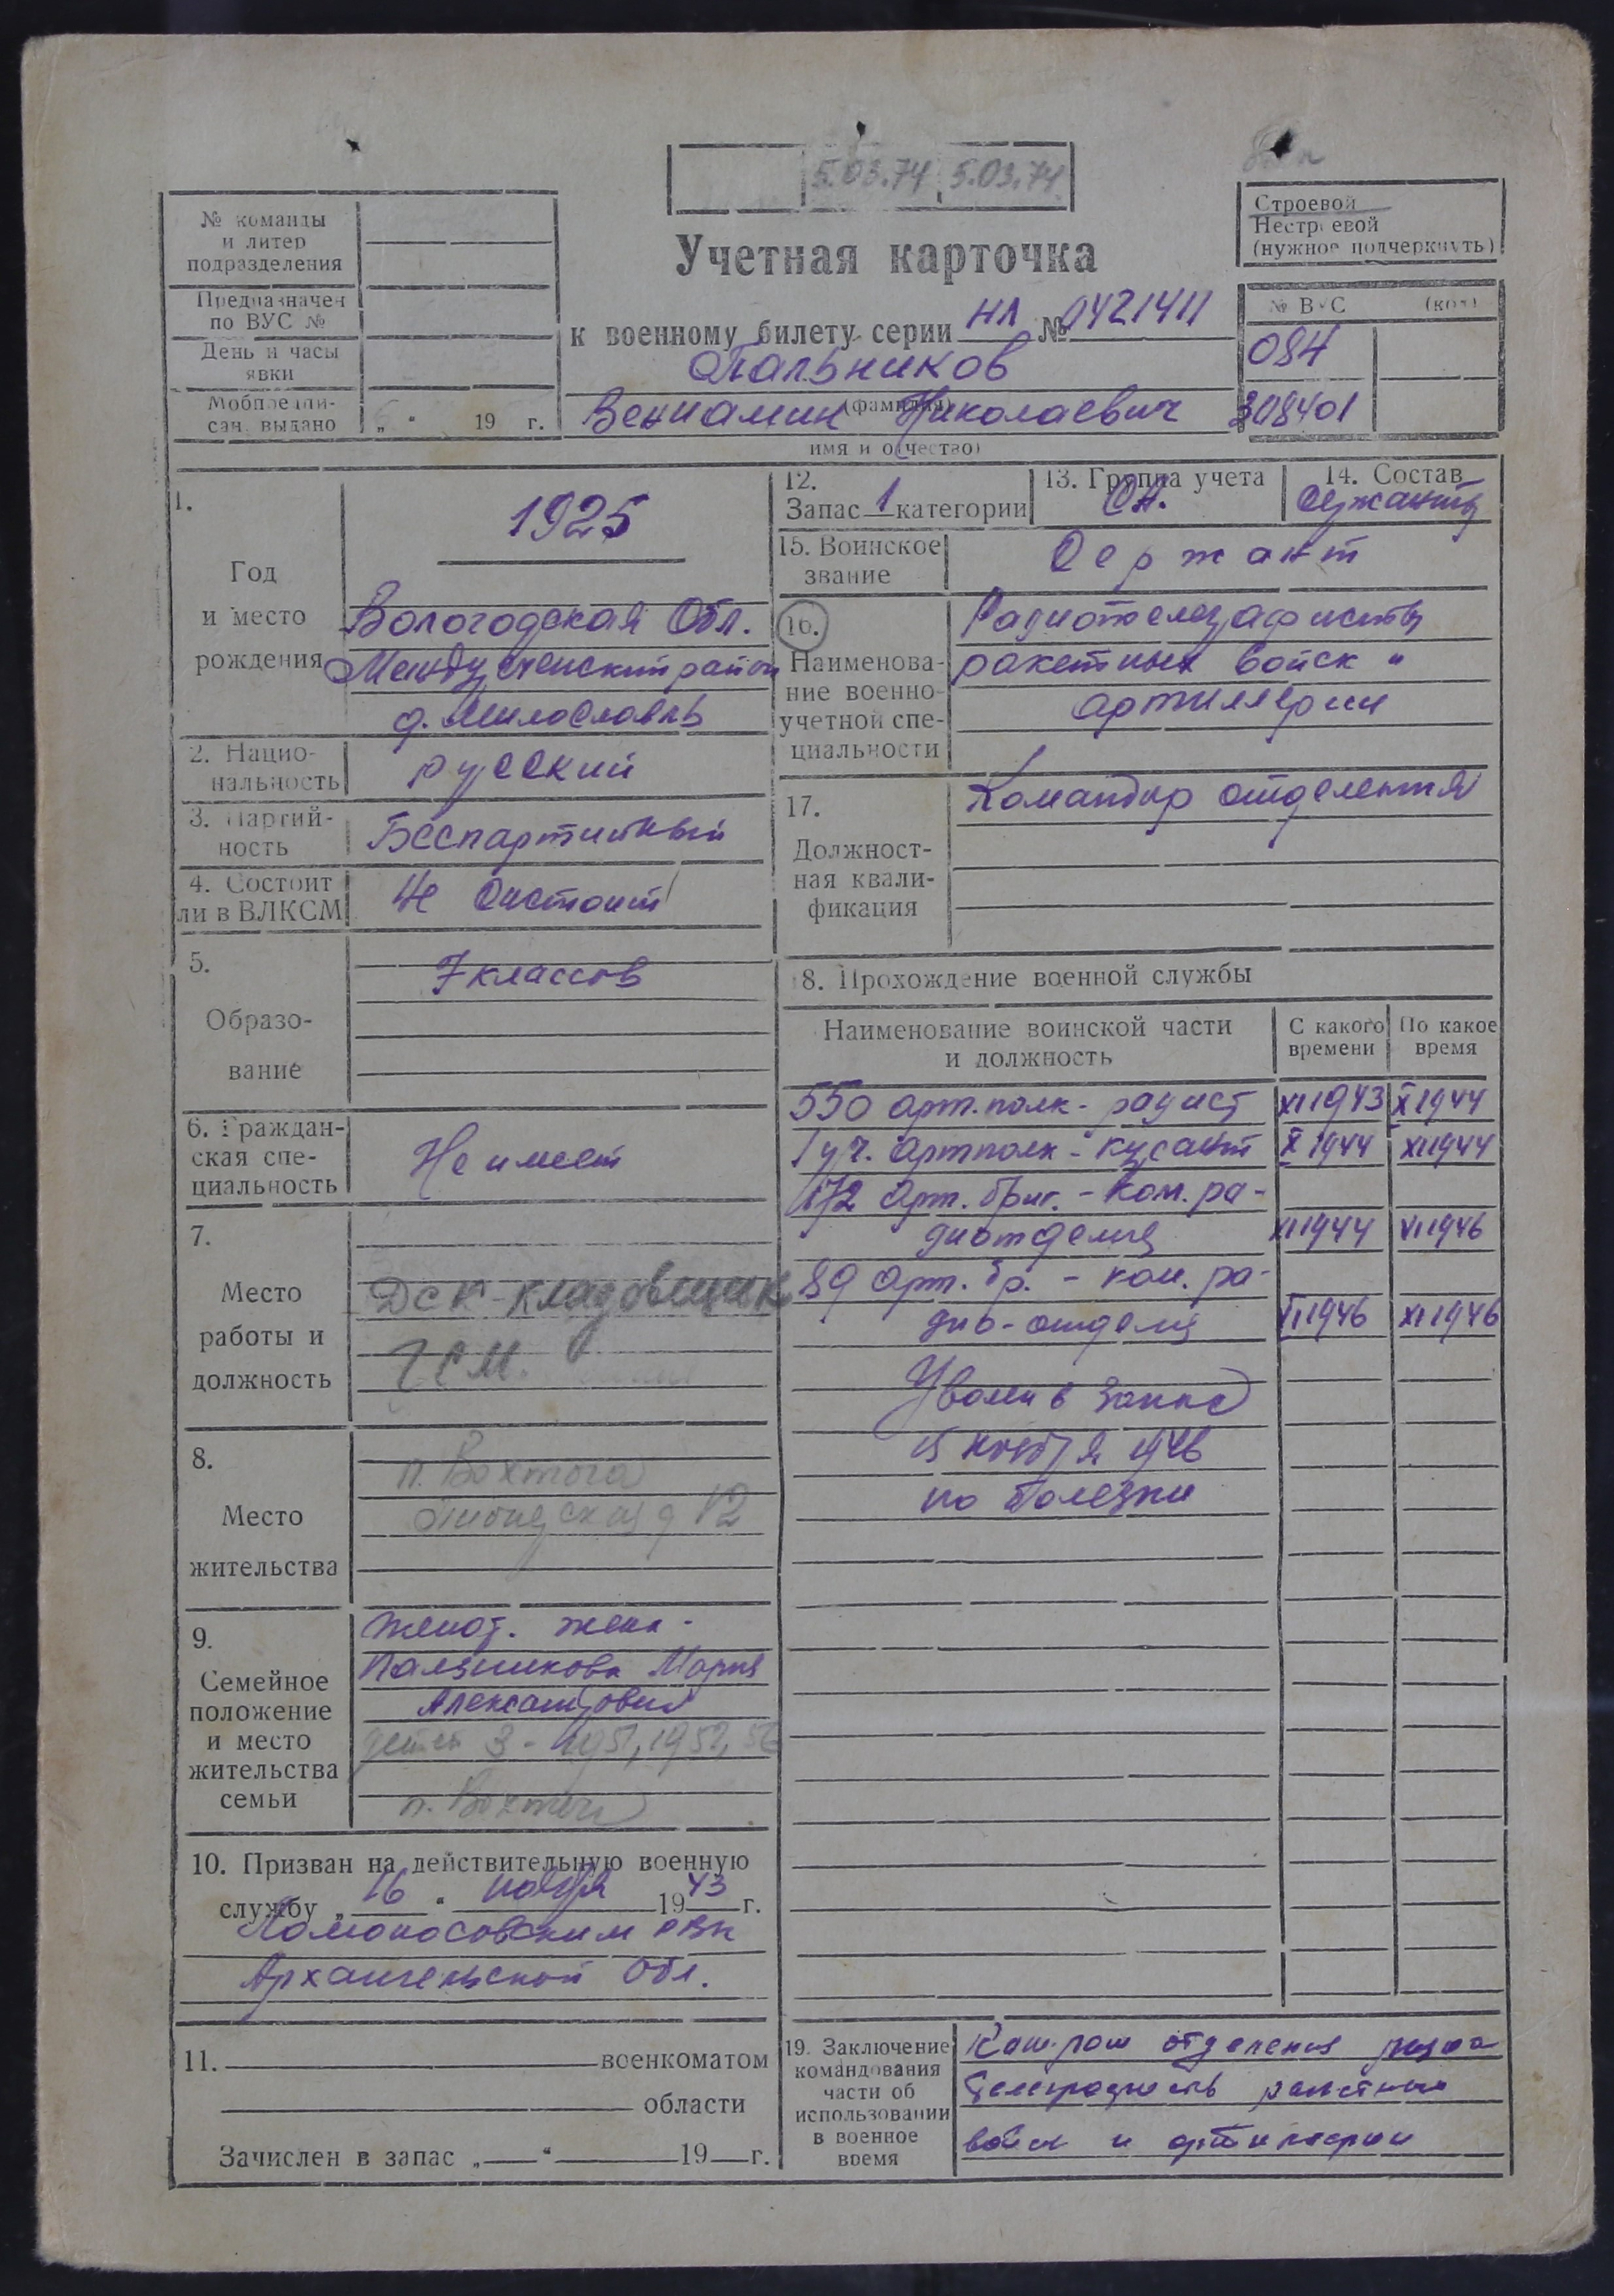 5.03.74 5.03.74
Строевой
Нестроевой
(нужное подчеркнуть)
№ команды
и литер
подразделения
Предназначен
по ВУС №
День и часы
явки
Мобпредпи-
сан. выдано „ “ 19 г.
Учетная карточка
к военному билету серии НЛ № 0421411
Пальников
(фамилия)
Вениамин Николаевич
имя и отчество)
№ ВУС (код)
084
308401
1.
Год
и место
рождения
1925
Вологодская Обл.
Междуреченский район
д. Милославль
2. Нацио-
нальность
русский
3. Партий-
ность
Беспартийный
4. Состоит
ли в ВЛКСМ
Не Состоит
5.
Образо-
вание
7 классов
6. Граждан-
ская спе-
циальность
Не имеет
7.
Место
работы и
должность
ДСК кладовщик
ГСМ.
8.
Место
жительства
п. Вохтога
д 12
9.
Семейное
положение
и место
жительства
семьи
женат. жена -
Пальникова Мария
Александровна
детей 3 - 1951, 1952, 56
п. Вохтога
10. Призван на действительную военную
службу „ 16 “ ноября 1943 г.
Ломоносовским РВК
Архангельской Обл.
11. военкоматом
области
Зачислен в запас „ “ 19 г.
12.
Запас 1 категории
13. Группа учета
СА.
14. Состав
Сержанты
15. Воинское
звание
Сержант
16.
Наименова-
ние военно
учетной спе-
циальности
Радиотелеграфисты
ракетных войск и
артиллерии
17.
Должност-
ная квали-
фикация
Командир отделения
18. Прохождение военной службы
Наименование воинской части
и должность
С какого
времени
По какое
время
550 арт. полк - радист XI 1943 X 1944
1 уч. артполк - курсант X 1944 XI 1944
172 Арт. бриг. - Ком. ра-
диотделия XI 1944 VI 1946
89 Арт. бр. - ком. ра-
дио-отделя VI 1946 XI 1946
Уволен в запас
15 ноября 1946
по болезни
19. Заключение
командования
части об
использовании
в военное
время
отделения радио
телеграфистов ракетных
войск и артиллерии